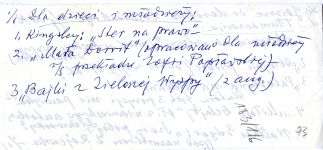 1/, Dla dzieci i młodzieży:
1. Kingsley: „Ster na prawo"
2. „Mała Dorrit" /opracowanie dla młodzieży
z/g przekładu Zofii Popławskiej/
3. „Bajki z Zielonej Wyspy" (z ang.)
183/116
73